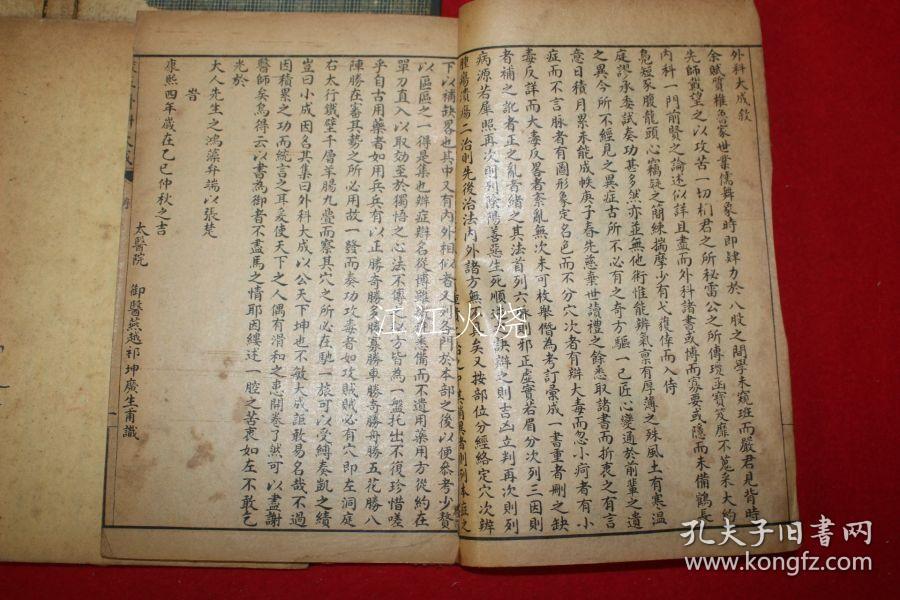 外科大成敘
余賦質椎魯家世業儒舞象時即肆力於八股之間學未窺班而嚴君見背時
先師戴望之以攻苦一切桐君之所秘雷公之所傳瓊函寶笈靡不蒐采大約
內科一門前賢之論述似詳且盡而外科諸書或博而寡要或隱而未備鶴長
鳧短豕腹龍頭心竊疑之簡練揣摩少有弋獲倖而入侍
庭謬承委試奏功甚多然亦並無他術惟能辨氣禀有厚薄之殊風土有寒溫
之異今所不經見之異症古所不必有之奇方驅一己匠心變通於前輩之遺
意日積月累未能成帙庚子春先慈棄世讀禮之餘悉取諸書而折衷之有言
症而不言脉者有圖形象定名色而不分穴次者有辯大毒而忽小疴者有小
毒反詳而大毒反畧者紊亂無次未可枚舉僭為考訂彙成一書重者刪之缺
者補之訛者正之亂者緒之其法首列六則邪正虛實若眉分次列三因則
病源若犀照再次則列陰陽善惡生死順逆訣辯之則吉凶立判再次則列
腫瘍潰瘍二治則先後治法內外諸方無矣又按部位分經絡定穴次辨
下以補缺畧也其中又有內外相似者又列各門於本部之後以便叅考少贅
以區區之一得是集也辯症辯名從博雖悉備而不遺用藥用方從約在
單刀直入以取効至於獨悟之心法不傳方皆為一盤托出不復珍惜嗟
乎自古用藥者如用兵兵有以正勝奇勝多勝寡勝車勝奇勝舟勝五花勝八
陣勝在審其勢之所必用故一發而奏功攻毒者如攻賊賊必有穴即左洞庭
右太行鐵壁千層羊腸九疊而察其穴之所必在馳一旅可以受縛奏凱之績
豈曰小成因名其集曰外科大成以公天下坤也不敏大成詎敢易名哉不過
因積累之功而統言之耳爰使天下之人偶有滑和之患開卷了然可以盡謝
醫師矣烏得云以書為御者不盡馬之情耶因縷述一腔之苦衷如左不敢乞
光於
大人先生之鴻藻弁端以張楚
旹
康熙四年歲在乙巳仲秋之吉
太醫院 御醫燕越祁坤廣生甫識
江江火烧
孔夫子旧书网
www.kongfz.com